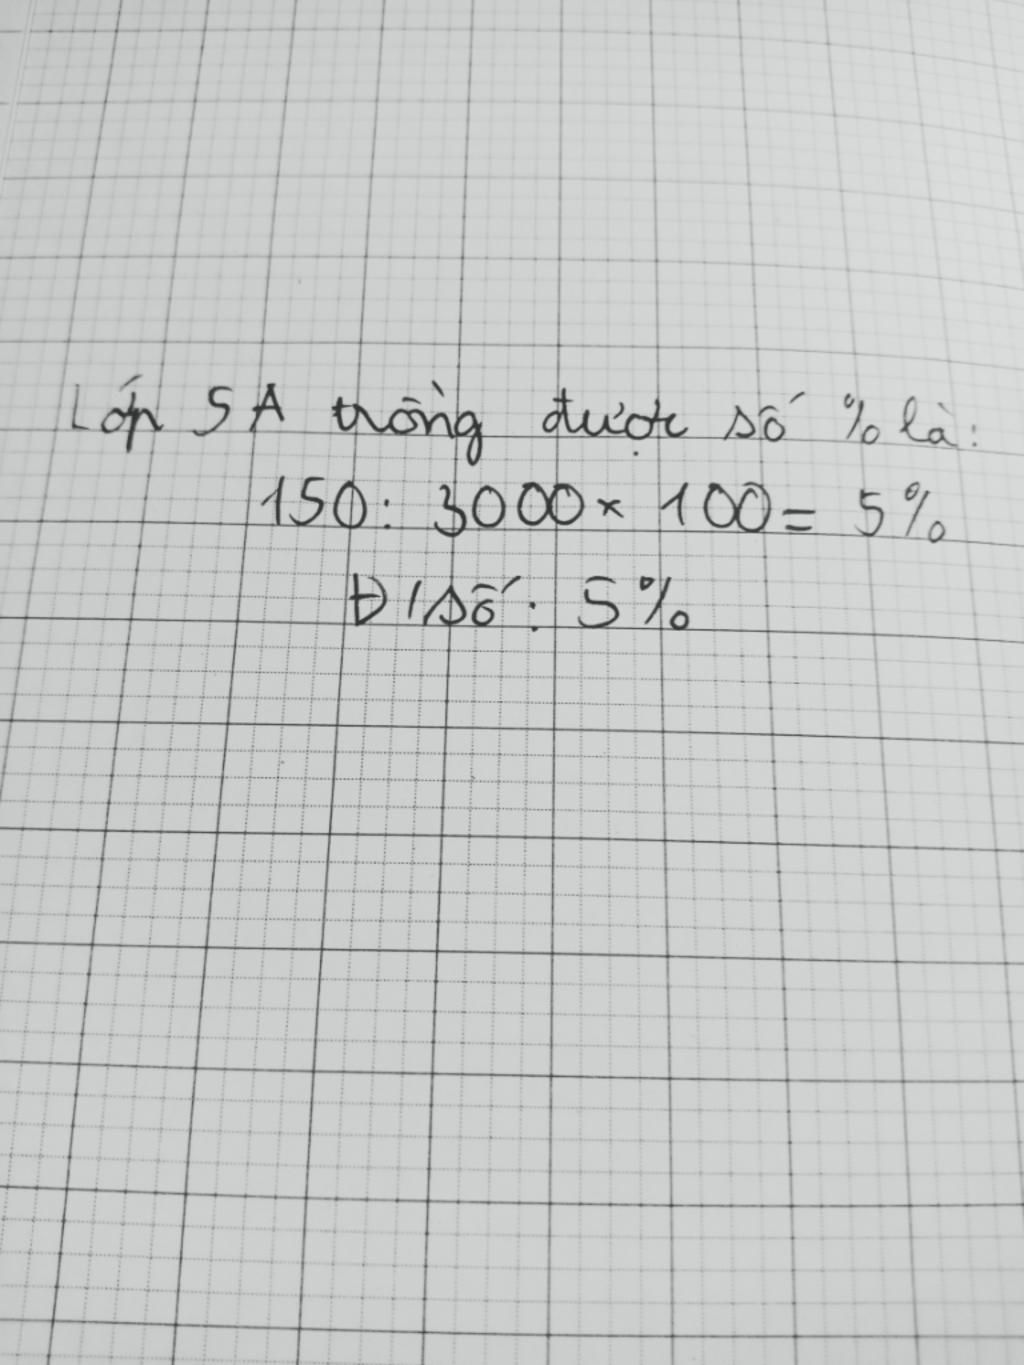 Lớp 5A trồng được số % là:
150 : 3000 × 100 = 5%
Đ/số : 5%